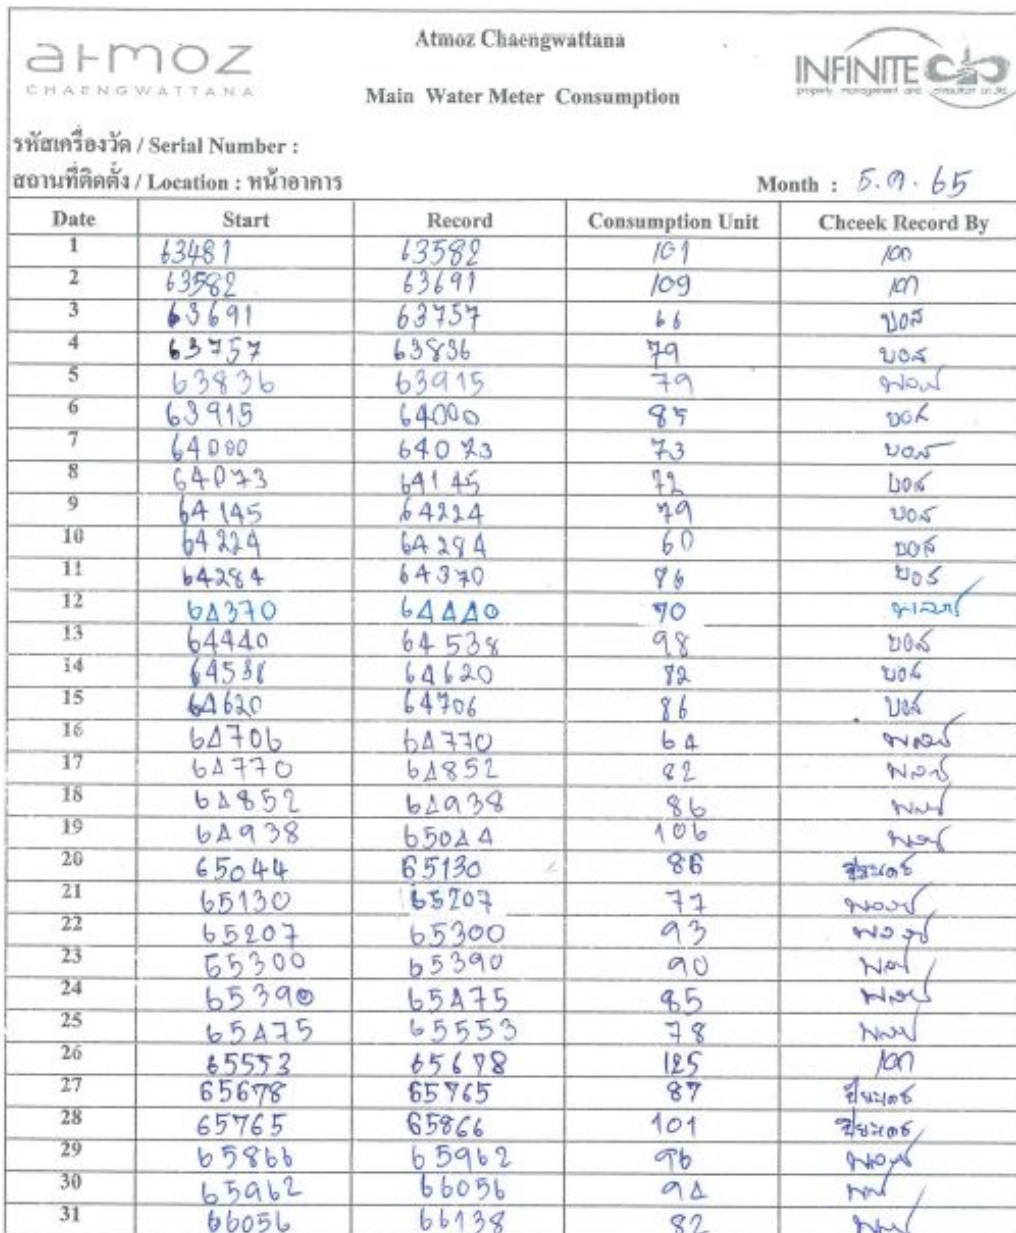 atmoz
CHAENGWATTANA
Atmoz Chaengwattana
Main Water Meter Consumption
INFINITE
property management and consultant co.,ltd.
รหัสเครื่องวัด / Serial Number :
สถานที่ติดตั้ง / Location : หน้าอาคาร
Month : 5.ค. 65
Date Start Record Consumption Unit Chceek Record By
1 63481 63582 101 เอก
2 63582 63691 109 เอก
3 63691 63757 66 บอส
4 63757 63836 79 บอส
5 63836 63915 79
6 63915 64000 85 บอส
7 64000 64073 73 บอส
8 64073 64145 72 บอส
9 64145 64224 79 บอส
10 64224 64284 60 บอส
11 64284 64370 86 บอส
12 64370 64440 70
13 64440 64538 98 บอส
14 64538 64620 82 บอส
15 64620 64706 86 บอส
16 64706 64770 64
17 64770 64852 82
18 64852 64938 86
19 64938 65044 106
20 65044 65130 86 ปิยะเดช
21 65130 65207 77
22 65207 65300 93
23 65300 65390 90
24 65390 65475 85
25 65475 65553 78
26 65553 65678 125 เอก
27 65678 65765 87 ปิยะเดช
28 65765 65866 101 ปิยะเดช
29 65866 65962 96
30 65962 66056 94
31 66056 66138 82